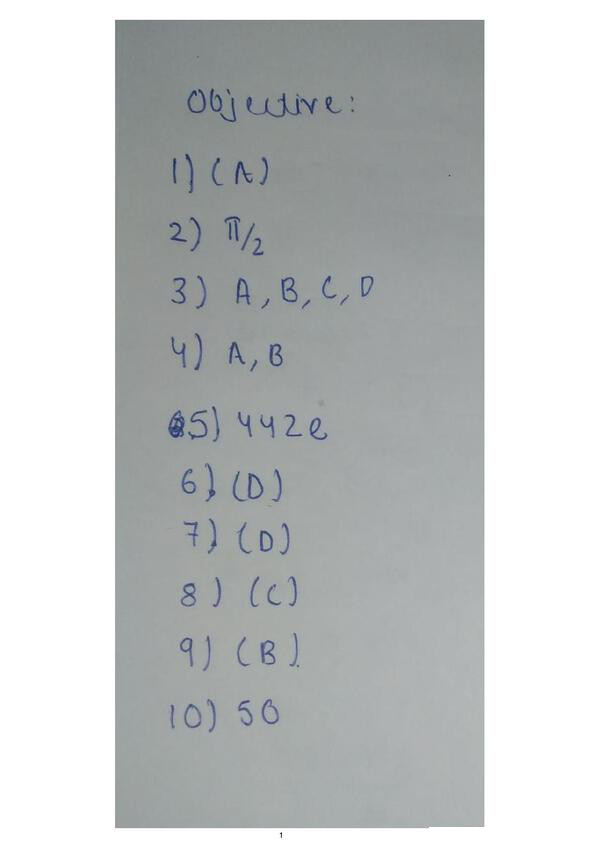 Objective:
1) (A)
2) π/2
3) A, B, C, D
4) A, B
5) 442e
6) (D)
7) (D)
8) (C)
9) (B).
10) 50
1